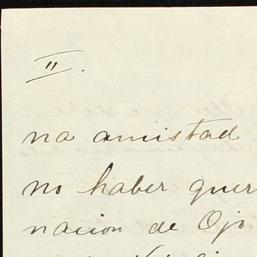 II.
na amistad
no haber quer
nacion de Ojo